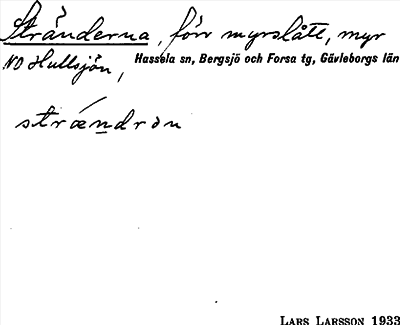 Stränderna, förr myrslått, myr
NO Hullsjön, Hassela sn, Bergsjö och Forsa tg, Gävleborgs län
strǽndrɘn
LARS LARSSON 1933